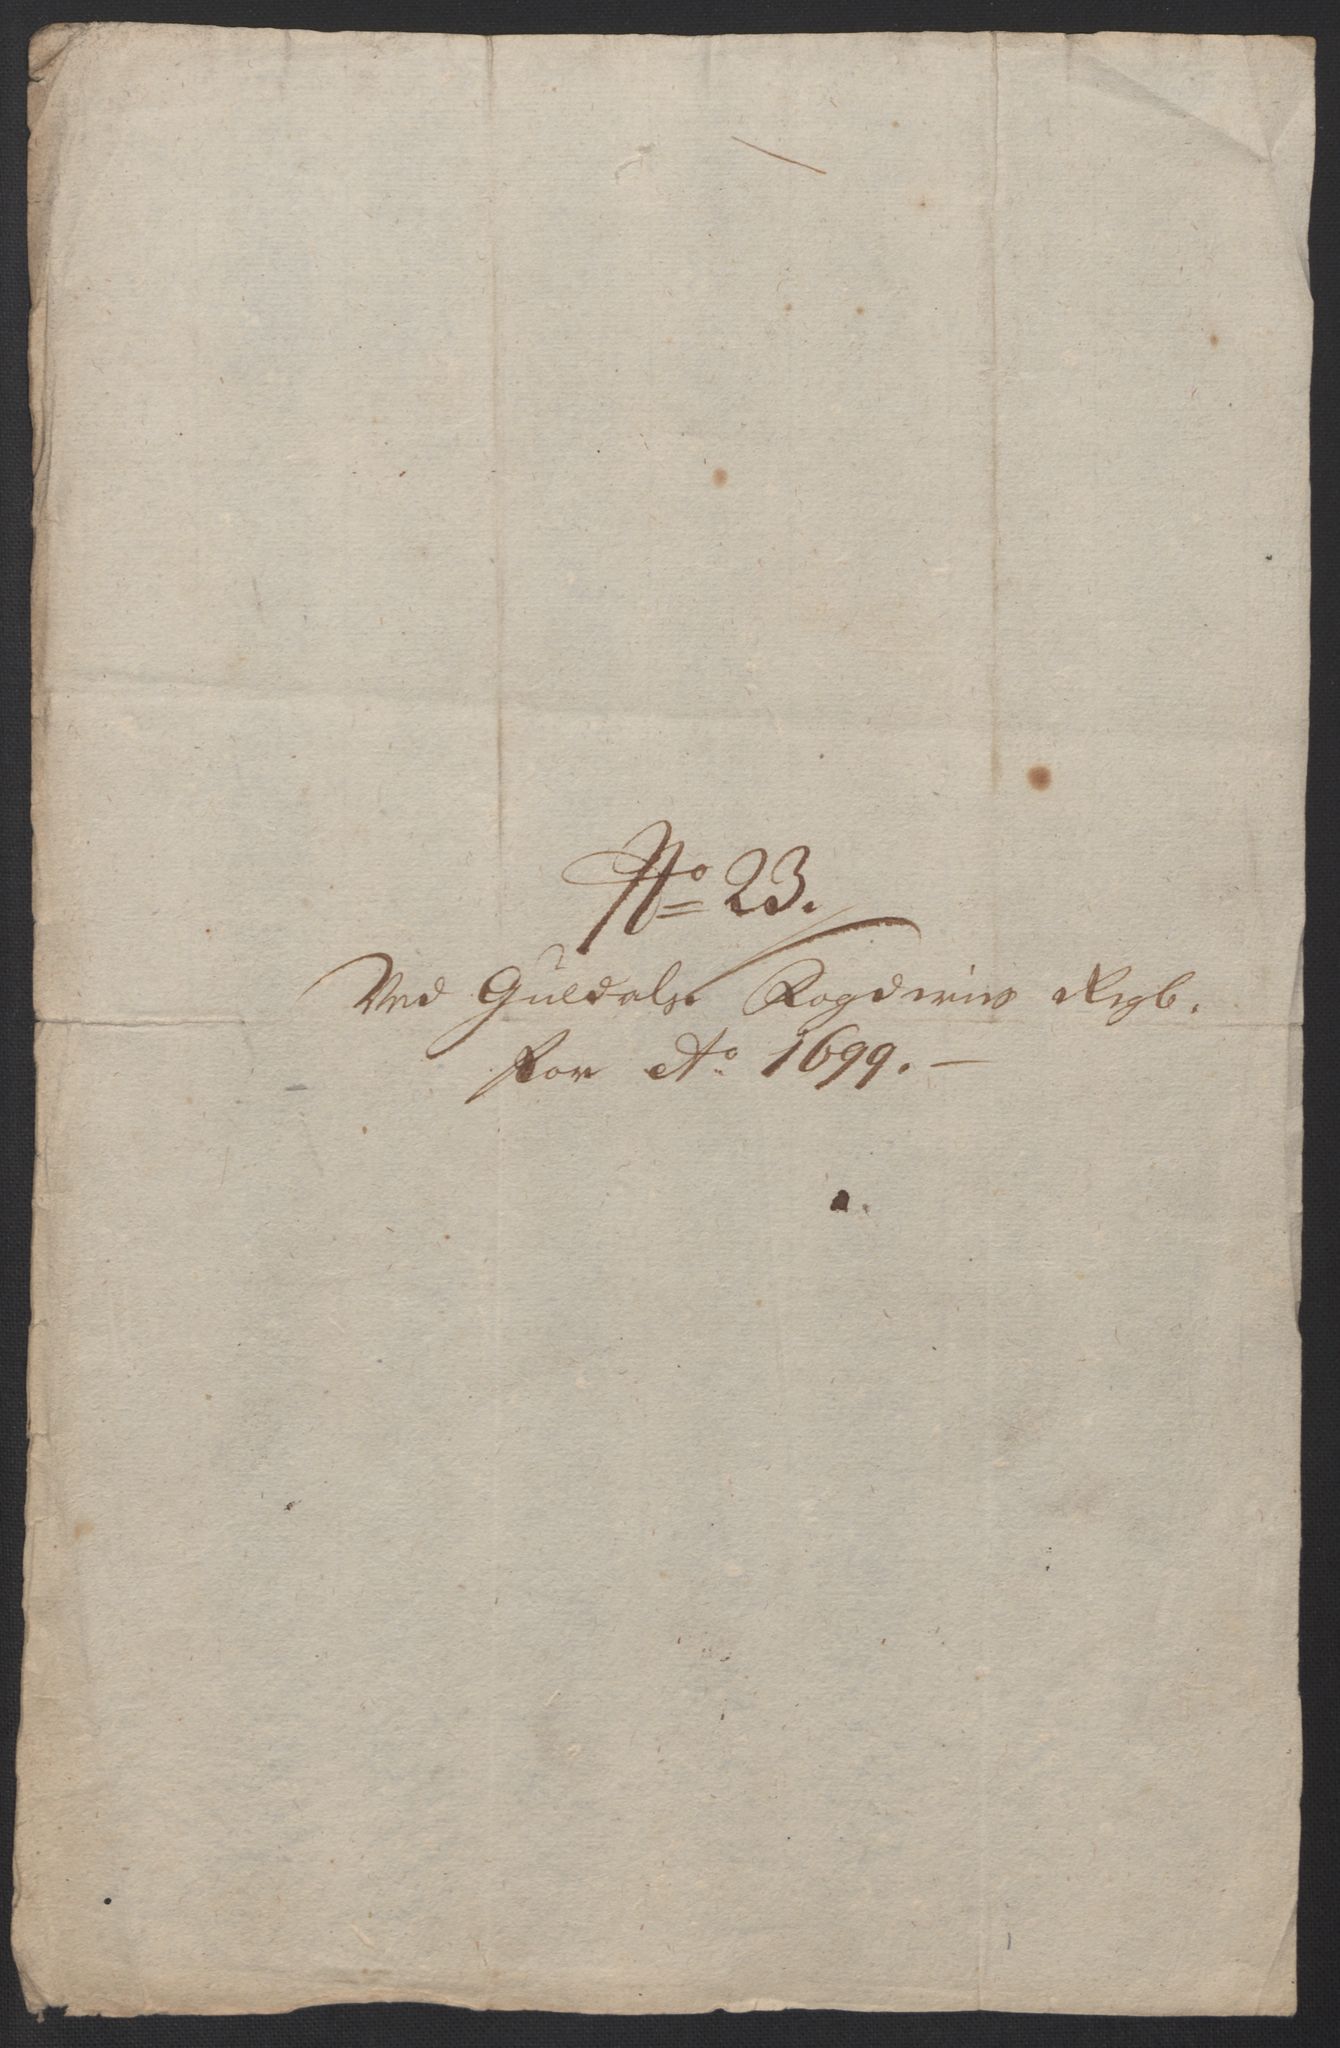 No 23.
Ved Guldals Fogderies Regb.
for Ao 1699. -